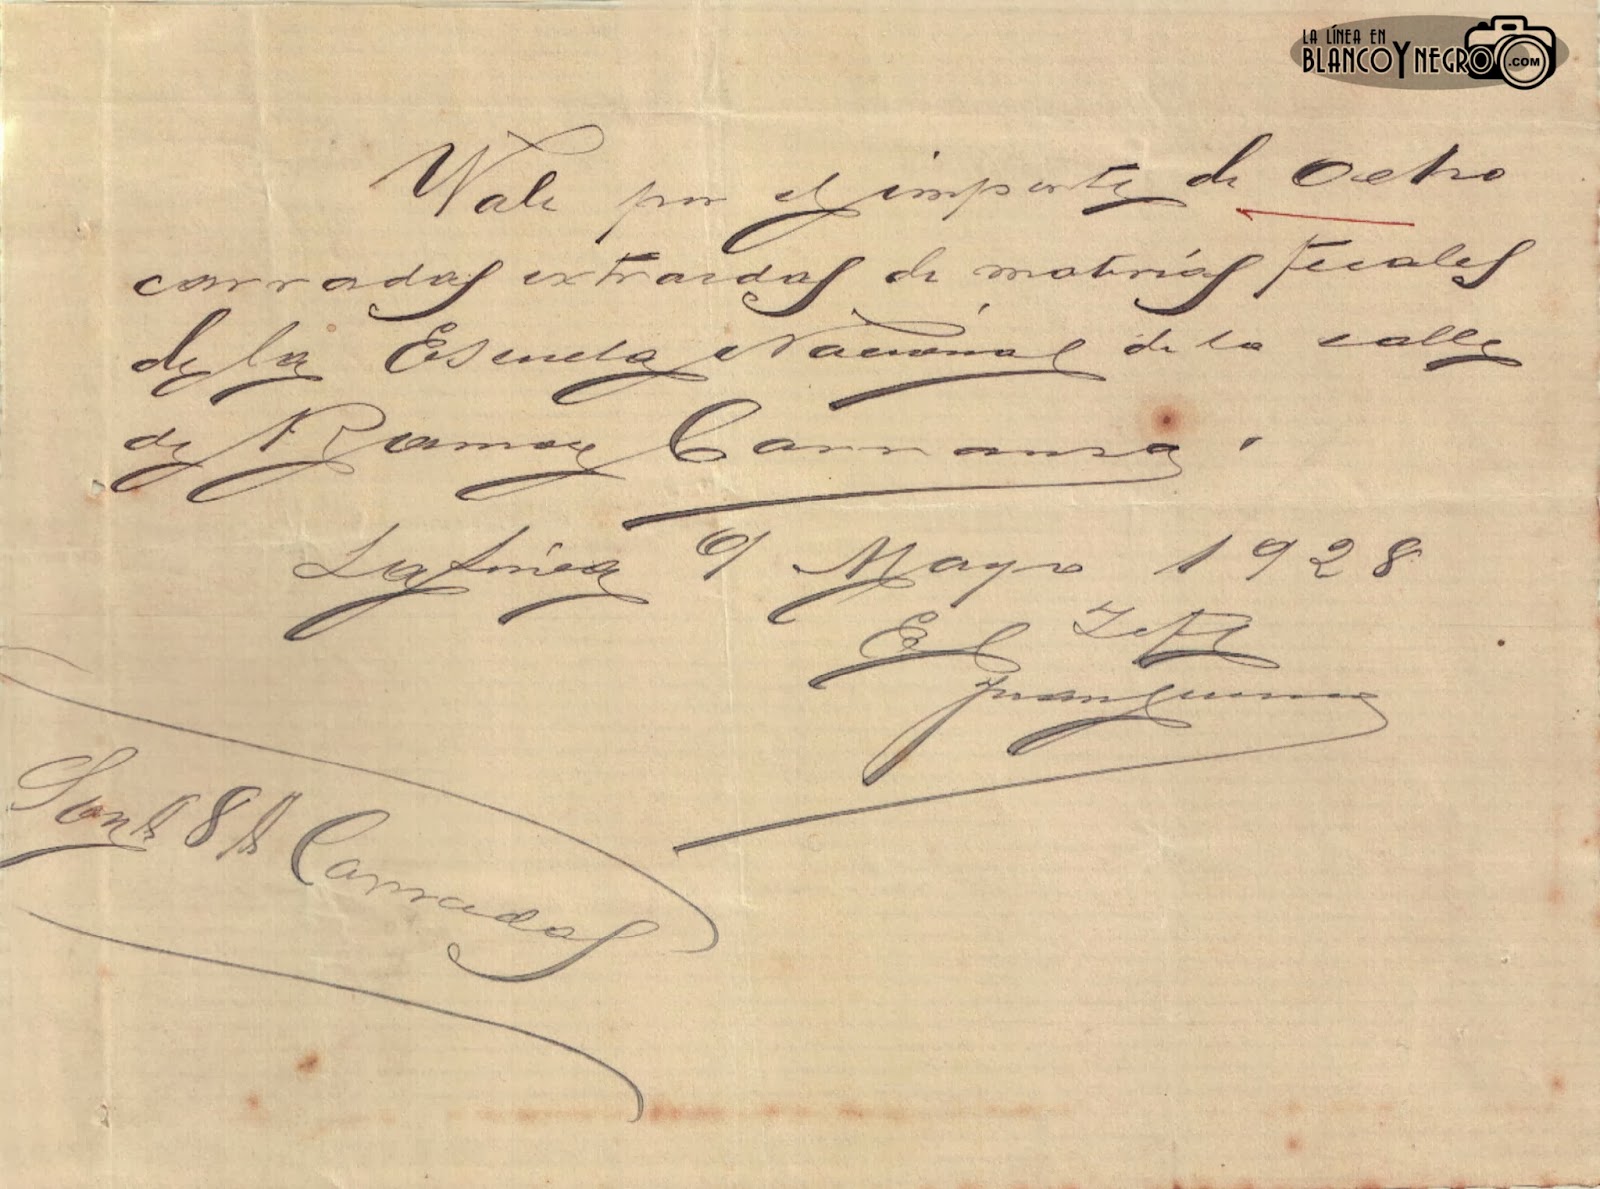 LA LÍNEA EN
BLANCO Y NEGRO.COM
Vale por el importe de Ocho
carradas extraidas de materias fecales
de la Escuela Nacional de la calle
de Ramon Carranza.
La Línea 9 Mayo 1928
El Jefe
Son 8 Carradas